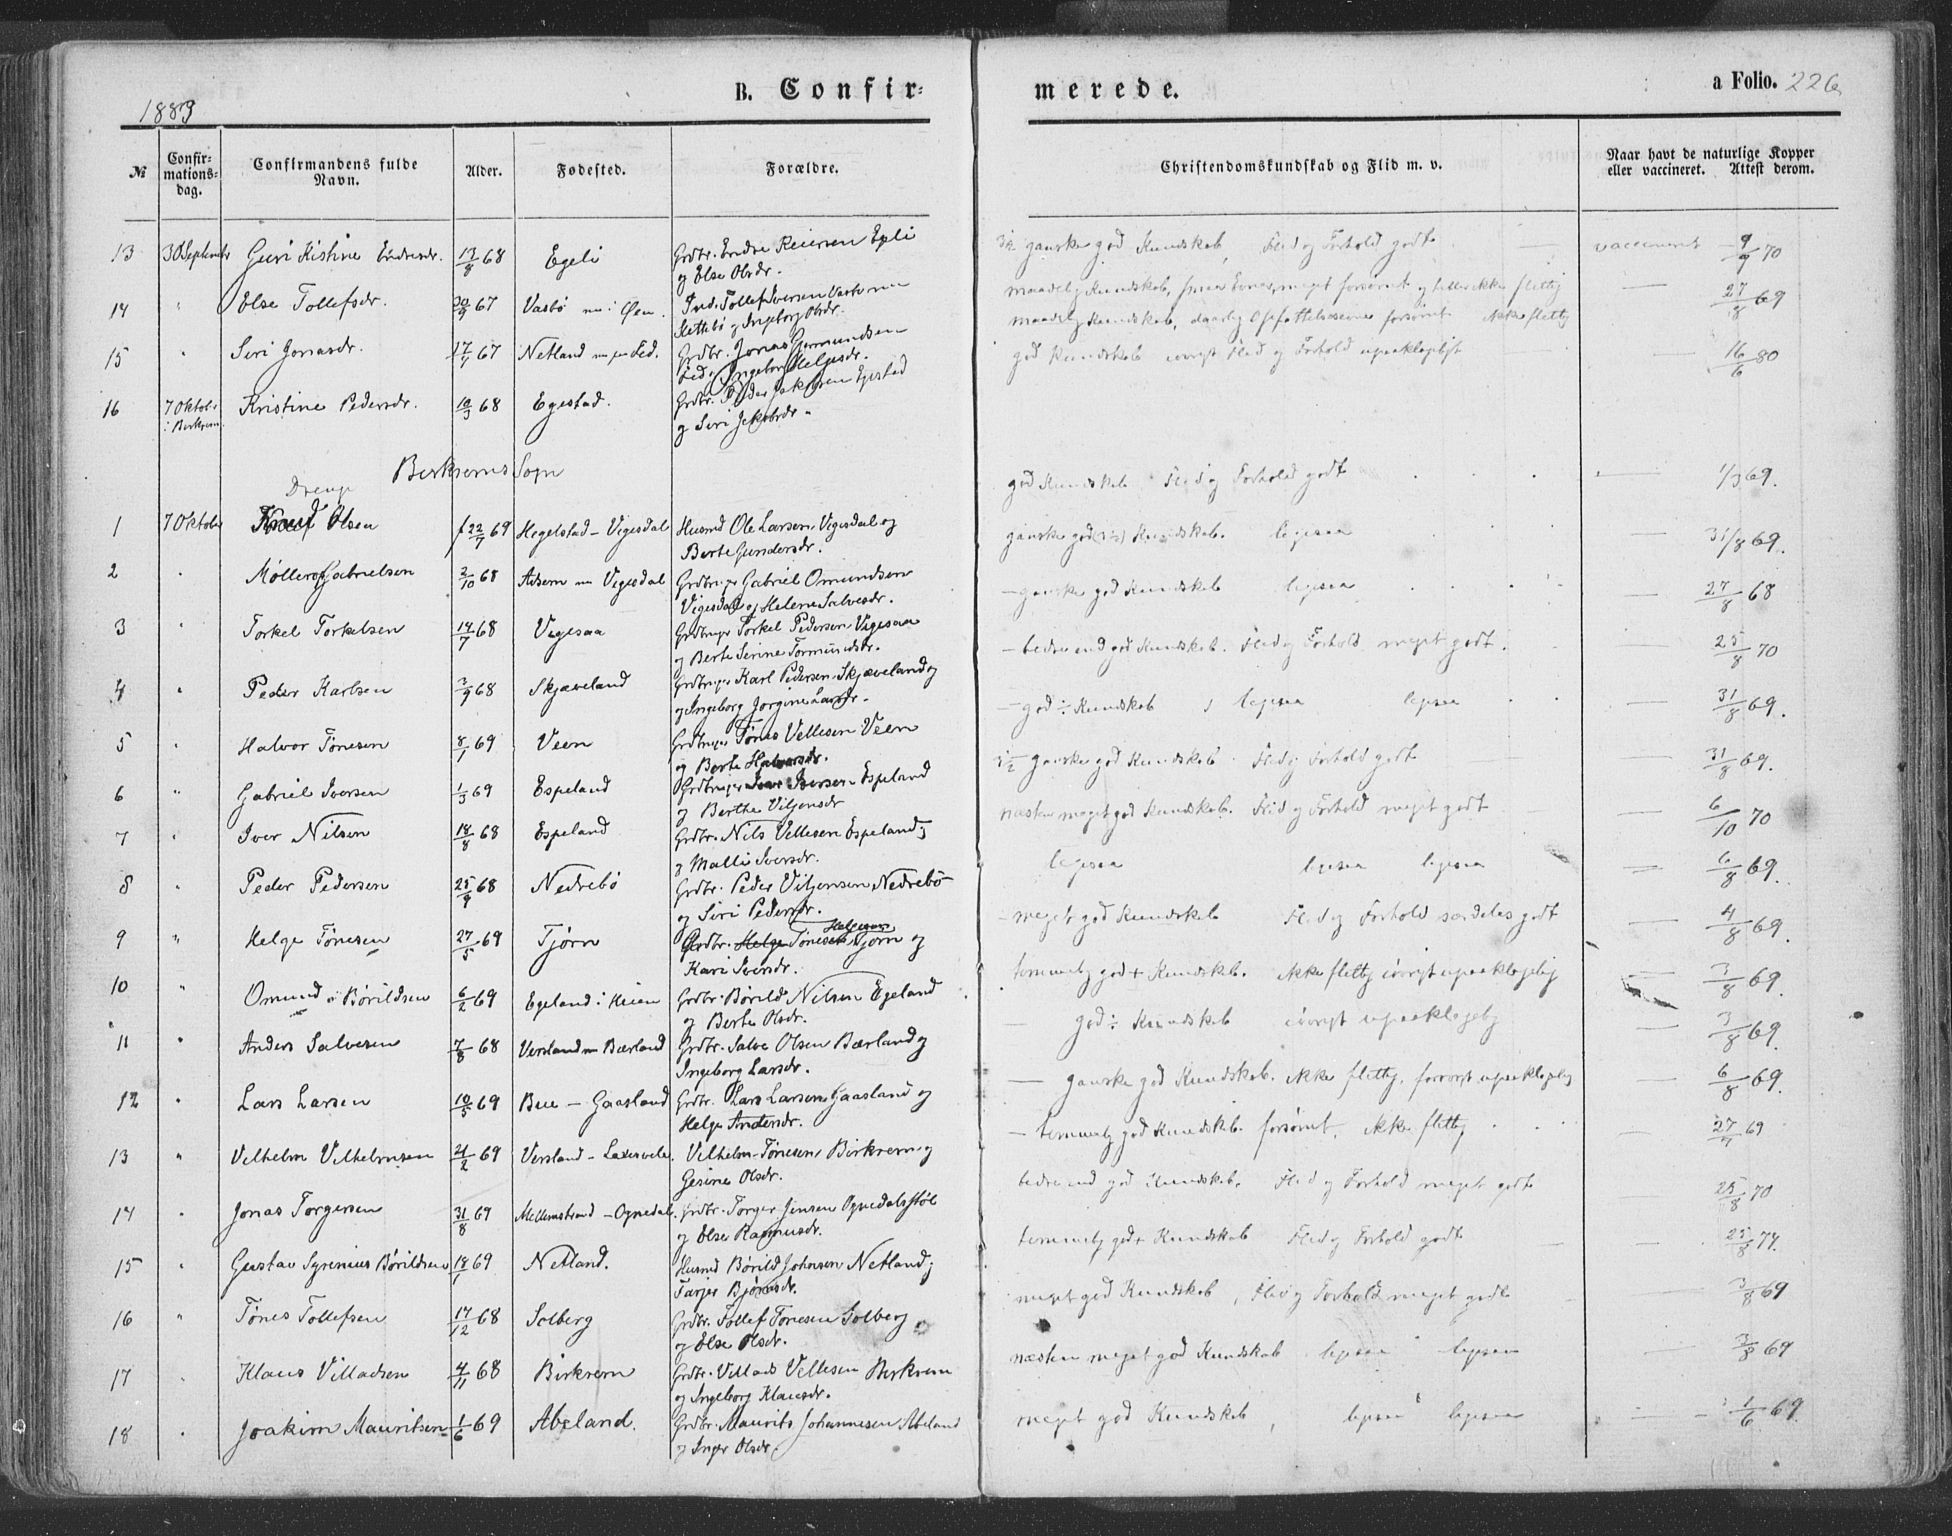 1883
B. Confirmerede.
a Folio. 226
№
Confirmationsdag.
Confirmandens fulde Navn.
Alder.
Fødested.
Forældre.
Christendomskundskab og Flid m. v.
Naar havt de naturlige Kopper eller vaccineret. Attest derom.
13 30 September Guri Kistine Endresdr. 13/8 68 Egeli Grdbr. Endre Reiersen Egeli
og Else Olsdr.
ganske god Kundskab, Flid og Forhold godt vaccineret 9/9 70
14 " Else Tollefsdr. 20/9 67 Vasbø nu i Øen.
Slettebø og Ingeborg Olsdr.
maadelig Kundskab, meget forsømt og heller ikke flittig 27/8 69
maadelig Kundskab, daarlig Opfattelsesevne forsømt ikke flittig
15 " Siri Jonasdr. 17/4 67 Netland Grdbr. Jonas Gormundsen
og Ingeborg Helgesdr.
god Kundskab iøvrigt Flid og Forhold upaaklageligt 16/6 80
16 7 Oktobr. i Birkrem. Kristine Pedersdr. 10/3 68 Egestad. Grdbr. Peder Jakobsen Egestad
og Siri Jakobsdr.
Birkrems Sogn
Drenge
god Kundskab Flid og Forhold godt 1/3 69.
1 7 Oktober Knud Olsen f 22/7 69 Hegelstad - Vigesdal Husmd Ole Larsen Vigesdal og
Berte Gundersdr.
ganske god Kundskab. ligesaa 31/8 69.
2 " Møllerop Gabrielsen 2/10 68 Adsem nu Vigesdal Grdbruger Gabriel Omundsen
Vigesdal og Helene Salvesdr.
ganske god Kundskab ligesaa 27/8 68
3 Torkel Torkelsen 14/7 68 Vigesaa Grdbruger Torkel Pedersen Vigesaa
og Berte Serine Tormundsdr.
- bedre end god Kundskab. Flid og Forhold meget godt. 25/8 70
4 " Peder Karlsen 3/9 68 Skjæveland Grdbruger Karl Pedersen Skjæveland og
Ingeborg Jorgine Larsdr.
- god ÷ Kundskab, ligesaa ligesaa 31/8 69.
5 " Halvor Tønesen 8/1 69 Veen Grdbruger Tønes Vellesen Veen
og Berte Halvorsdr.
ganske god Kundskab. Flid og Forhold godt 31/8 69.
6 " Gabriel Iversen 1/3 69 Espeland Grdbruger Iver Iversen Espeland
og Berthe Viljensdr
næsten meget god Kundskab. Flid og Forhold meget godt 6/10 70
7 " Iver Nilsen 18/8 68 Espeland Grdbr. Nils Vellesen Espeland
og Malli Iversdr.
ligesaa ligesaa ligesaa 6/8 69.
8 " Peder Pedersen 25/9 68 Nedrebø Grdbr. Peder Viljensen Nedrebø
og Siri Pedersdr.
- meget god Kundskab Flid og Forhold særdeles godt 4/8 69.
9 " Helge Tønesen 27/5 69 Tjørn Grdbr. Helge Tønesen Helgesen Tjørn og
Kari Iversdr.
temmelig god + Kundskab. ikke flittig iøvrigt upaaklagelig 3/8 69.
10 " Omund Børildsen 6/2 69 Egeland i Heien Grdbr. Børild Nilsen Egeland
og Berte Olsdr.
- god ÷ Kundskab iøvrigt upaaklagelig 3/8 69.
11 " Anders Salvesen 7/8 68 Versland nu Bærland Grdbr. Salve Olsen Bærland og
Ingeborg Larsdr.
- ganske god Kundskab. ikke flittig, forøvrigt upaaklagelig 6/8 69.
12 " Lars Larsen 10/5 69 Bue - Gaasland Grdbr. Lars Larsen Gaasland og
Helge Andersdr.
- temmelig god Kundskab. forsømt, ikke flittig 27/7 69
13 " Vilhelm Vilhelmsen 21/2 69 Versland - Vilhelm Tønesen Birkrem og
Gesine Olsdr.
bedre end god Kundskab. Flid og Forhold meget godt 25/8 70
14 " Jonas Torgersen 31/8 69 Mellemstrand - Ognedal. Grdbr. Torger Jensen Ognedalsstøl
og Else Rasmusdr.
temmelig god + Kundskab Flid og Forhold godt 25/8 74.
15 " Gustav Syrenius Børildsen 18/1 69 Netland. Husmd Børild Johnsen Netland
Tarjer Bjørnsdr.
meget god Kundskab, Flid og Forhold meget godt 3/8 69
16 " Tønes Tollefsen 17/12 68 Solberg Grdbr. Tollef Tønesen Solberg
og Else Olsdr.
næsten meget god Kundskab ligesaa ligesaa 3/8 69
17 " Klaus Villadsen 4/11 68 Birkrem Grdbr. Villads Vellesen Birkrem
og Ingeborg Klausdr.
meget god Kundskab, ligesaa ligesaa 1/6 69.
18 " Joakim Mauritsen 1/6 69 Abeland. Grdbr. Maurits Johannesen Abeland
og Inger Olsdr